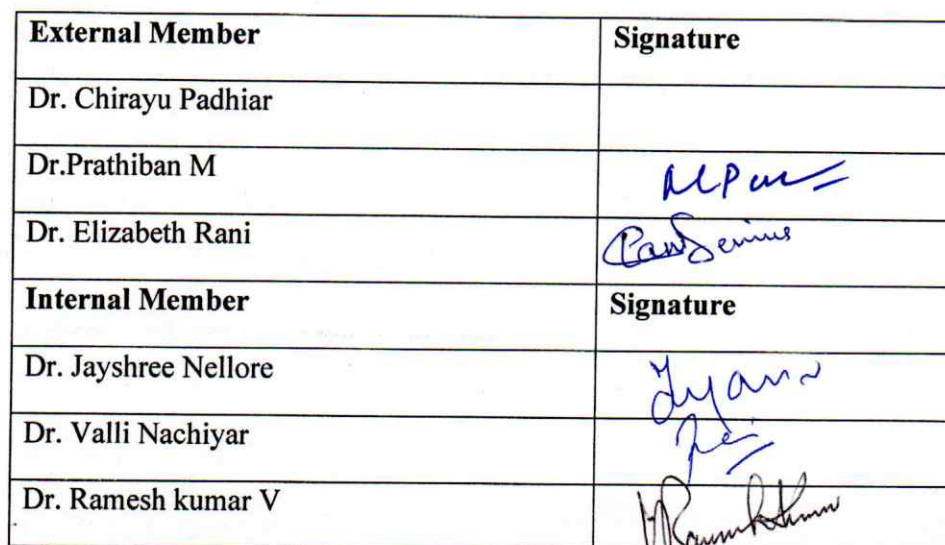 External Member Signature
Dr. Chirayu Padhiar
Dr.Prathiban M
Dr. Elizabeth Rani
Internal Member Signature
Dr. Jayshree Nellore
Dr. Valli Nachiyar
Dr. Ramesh kumar V